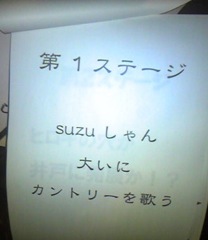 第１ステージ
suzuしゃん
大いに
カントリーを歌う